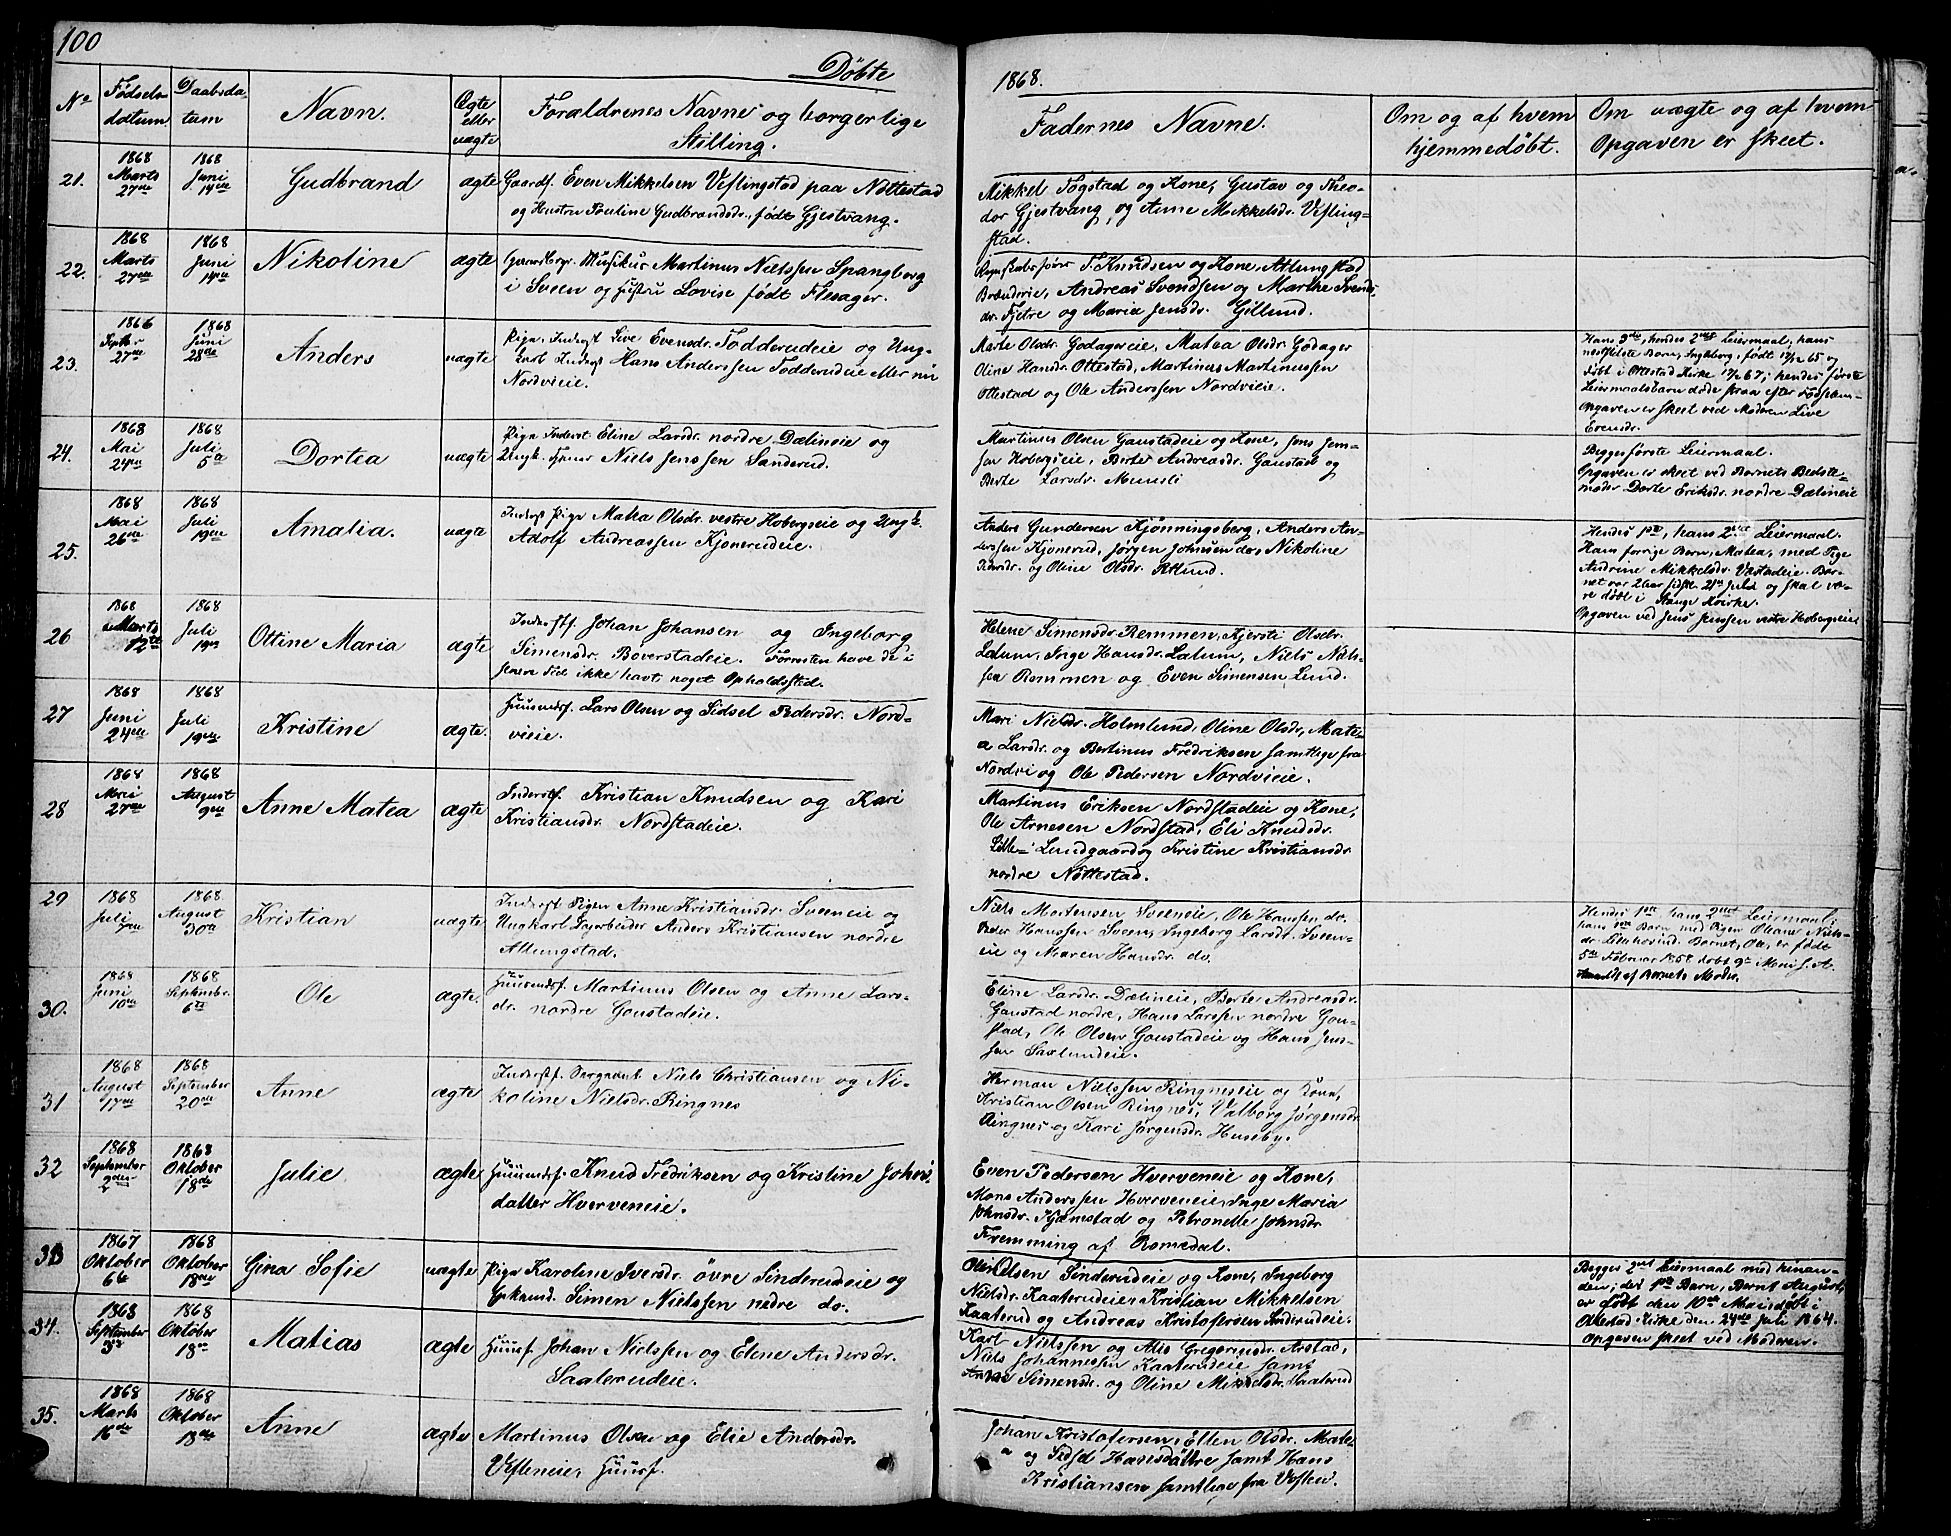 100
Døbte
1868.
No
Fødsels-
datum
Daabsda-
tum
Navn.
Ægte
eller
uægte
Forældrenes Navne og borgerlige
Stilling.
Fadernes Navne.
Om og af hvem
hjemmedøbt.
Om uægte og af hvem
Opgaven er skeet.
21.
1868
Marts
27de
1868
Juni
14de
Gudbrand
ægte
Gaardf. Even Mikkelsen Veflingstad paa Nøttestad
og Hustru Pauline Gudbrandsdr. født Gjestvang.
Mikkel Fogstad og Kone, Gustav og Theo-
dor Gjestvang, og Anne Mikkelsdr. Vefling-
stad.
22.
1868
Marts
27de
1868
Juni
14de
Nikoline
ægte
Musikus Martinus Nielssen Spangberg
i Sveen og Hustru Lovise født Flesager.
T. Knudsen og Kone, Atlungstad
Brænderie, Andreas Svendsen og Marthe Svends-
dr. Fjetre og Maria Jensdr. Gillund.
23.
1866
Septbr
27de
1868
Juni
28de
Anders
uægte
Pige, Inderst Live Evensdr. Todderudeie og Ung-
karl Inderst Hans Anderssen Todderudeie eller nu
Nordvieie.
Marte Olsdr. Godagereie, Matea Olsdr. Godager
Oline Hansdr. Ottestad, Martinus Martinussen
Ottestad og Ole Anderssen Nordvieie.
Hans 3die, hendes 2det Leiermaal, hans
næstsidste Barn, Ingeborg, født 17/12 65 og
døbt i Ottestad Kirke 17/2 67; hendes første
Leiermaalsbarn døde strax efter Fødselen.-
Opgaven er skeet ved Moderen Live
Evensdr.
24.
1868
Mai
24de
1868
Juli
5te
Dortea
uægte
Pige Inderst Eline Larsdr. nordre Dælineie og
Ungk. Tjener Niels Jenssen Sanderud.
Martinus Olsen Gaustadeie og Kone, Jens Jens-
sen Hobergseie, Berte Andreasdr. Gaustad og
Berte Larsdr. Memsli
Begges første Leiermaal.
Opgaven er skeet ved Barnets Bedste-
moder Dorte Eriksdr. nordre Dælineie
25.
1868
Mai
26de
1868
Juli
19de
Amalia.
uægte
Inderst Pige Matea Olsdr. vestre Hobergseie og Ungk.
Adolf Andreassen Kjonerudeie.
Anders Gundersen Kjønningsberg, Anders An-
derssen Kjonerud, Jørgen Johnsen do, Nikoline
Pedersdr. og Oline Olsdr. Ekelund.
Hendes 1ste, hans 2det Leiermaal.
Hans forrige Barn, Matea, med Pige
Andrine Mikkelsdr. Væstadeie. Bar-
net var 2 Aar sidst. 21de Juli og skal væ-
re døbt i Stange Kirke.
Opgaven ved Jens Jenssen vestre Hobergseie
26
1868
Marts
12te
1868
Juli
19de
Ottine Maria
ægte
Inderstf. Johan Johansen og Ingeborg
Simensdr. Boverstadeie. Forresten have de i
senere Tid ikke havt noget Opholdssted.
Helene Simensdr. Remmen, Kjersti Olsdr.
Latum, Inge Hansdr. Latum, Niels Niels-
sen Rommen og Even Simensen Lund.
27
1868
Juni
24de
1868
Juli
19de
Kristine
ægte.
Huusmdsf. Lars Olsen og Sidsel Pedersdr. Nord-
vieie.
Mari Nielsdr. Holmlund. Oline Olsdr, Mate-
a Larsdr. og Bertinus Fredriksen samtlige fra
Nordvi og Ole Pedersen Nordvieie.
28
1868
Mai
27de
1868
August
9de
Anne Matea
ægte
Inderstf. Kristian Knudsen og Kari
Kristiansdr. Nordstadeie.
Martinus Eriksen Nordstadeie og Kone,
Ole Arnesen Nordstad, Eli Knudsdr.
Lille-Lundgaard og Kristine Kristiansdr
nordre Nøttestad.
29
1868
Juli
7de
1868
August
30te
Kristian
uægte
Inderst Pigen Anne Kristiansdr. Sveeneie og
Ungkarl Løsarbeider Anders Kristiansen nordre
Atlungstad.
Niels Mortensen Sveeneie, Ole Hanssen do.
Peder Hanssen Sveen, Ingeborg Larsdr. Sveen-
eie og Maren Hansdr. do.
Hendes 1ste, hans 2det Leiermaal;
hans 1ste Barn med Pigen Oliane Niels-
dr. Lillehovind. Barnet, Ole, er født
5te Februar 1858 døbt 9de Mai s. A.
Anmeldt af Barnets Moder.
30.
1868
Juni
10de
1868
Septembr.
6te
Ole
ægte.
Huusmdsf Martinus Olsen og Anne Lars-
dr. nordre Gaustadeie.
Eline Larsdr. Dælineie, Berte Andreasdr.
Gaustad nordre, Hans Larssen nordre Gau-
stad, Ole Olsen Gaustadeie og Hans Jens-
sen Saxlundeie.
31
1868
August
17de
1868
September
20de
Anne
ægte
Inderstf. Sergeant Niels Christiansen og Ni-
koline Nielsdr. Ringnes
Herman Nielssen Ringneseie og Kone,
Kristian Olsen Ringnes, Valborg Jørgensdr.
Ringnes og Kari Jørgensdr. Huseby.
32
1868
September
2den
1868
Oktober
18de
Julie
ægte
Huusmdsf. Knud Fredriksen og Kristine Johns-
datter Hverveneie.
Even Pedersen Hverveneie og Kone,
Mons Anderssen Hverveneie, Inge Maria
Johnsdr. Kjæmstad og Petronelle Johnsdr
Fremming af Romedal.
33
1867
Oktober
6te
1868
Oktober
18de
Gina Sofie
uægte
Pige Karoline Iversdr. övre Sinderudeie og
Enkemd. Simen Nielssen nedre do.
Ole Olsen Sinderudeie og Kone, Ingeborg
Nielsdr. Kaaterudeie, Kristian Mikkelsen
Kaaterud og Andreas Kristofersen Sinderudeie.
Begges 2det Leiermaal med hinan-
den; det 1ste Barn, Bernt August,
er født den 10de Mai døbt i
Ottestad Kirke den 24de Juli 1864.
Opgaven skeet ved Moderen.
34.
1868
September
3die
1868
Oktober
18de
Matias
ægte
Huusf. Johan Nielssen og Elene Andersdr.
Saaterudeie.
Karl Nielssen og Alis Gregoriusdr. Arstad,
Niels Johannessen Kaaterudeie samt
Anne Simensdr. og Oline Mikkelsdr. Saaterud
35.
1868
Marts
16de
1868
Oktober
18de
Anne
ægte
Martinus Olsen og Elie Andersdr.
Vesleneie, Huusf.
Johan Kristofersen, Ellen Olsdr. Mate-
a og Sidsel Hansdøttre samt Hans
Kristiansen samtlige fra Veslen.